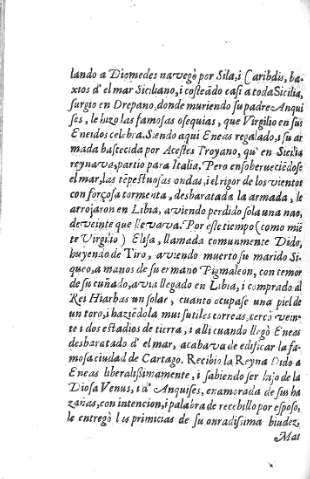 lando a Diomedes navegò por Sila, i Caribdis, ba-
xios d'el mar Siciliano, i costeãdo casi a toda Sicilia,
surgio en Drepano, donde muriendo su padre Anqui
ses, le hizo las famosas osequias, que Virgilio en sus
Eneidos celebra. Siendo aqui Eneas regalado, i su ar
mada bastecida por Acestes Troyano, qu' en Sicilia
reynava, partio para Italia. Pero ensoberveciẽdose
el mar, las tẽpestuosas ondas, i el rigor de los vientos
con forçosa tormenta, desbaratada la armada, le
arrojaron en Libia, aviendo perdido sola una nao,
de veinte que llevava. Por este tiempo (como miẽ
te Virgilio) Elisa, llamada comunmente Dido,
huyendo de Tiro, aviendo muerto su marido Si-
queo, a manos de su ermano Pigmaleon, con temor
de su cuñado, avia llegado en Libia, i comprado al
Rei Hiarbas un solar, cuanto ocupase una piel de
un toro, i haziẽdola mui sutiles correas, cercò vein-
te i dos estadios de tierra, i alli cuando llegò Eneas
desbaratado d'el mar, acabava de edificar la fa-
mosa ciudad de Cartago. Recibio la Reyna Dido a
Eneas liberalissimamente, i sabiendo ser hijo de la
Diosa Venus, i d' Anquises, enamorada de sus ha
zañas, con intencion, i palabra de recebillo por esposo,
le entregò las primicias de su onradissima biudez.
Mas